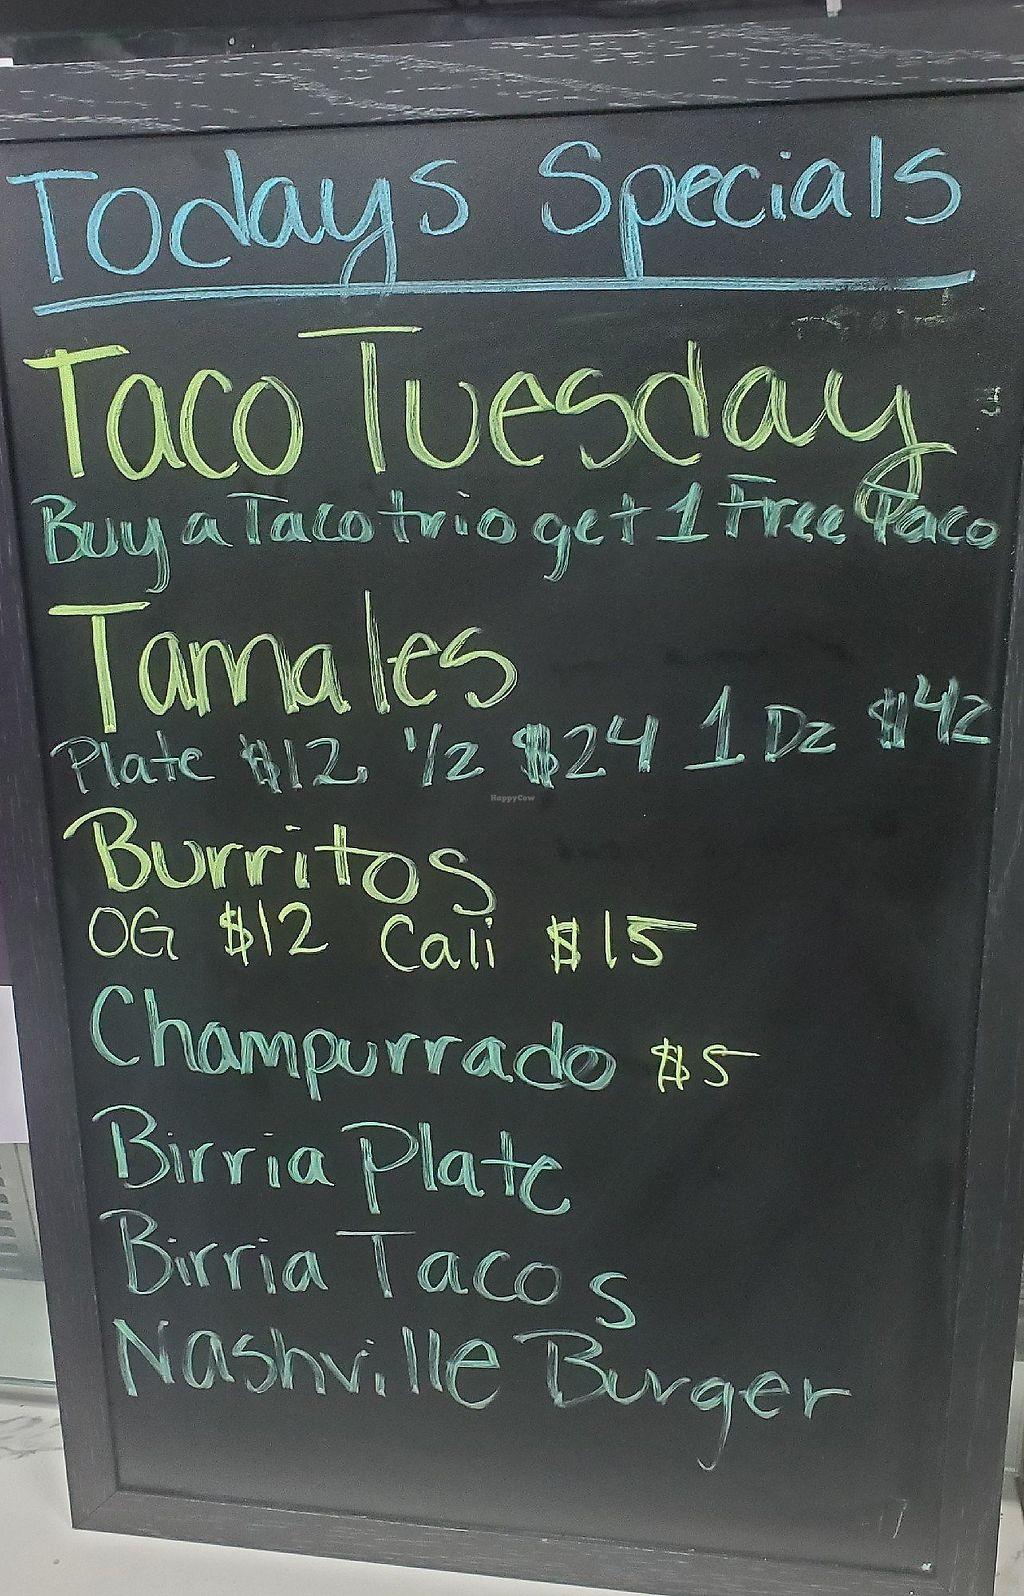 Todays Specials
Taco Tuesday
Buy a Taco trio get 1 Free Taco
Tamales
Plate $12 1/2 $24 1 Dz $42
HappyCow
Burritos
OG $12 Cali $15
Champurrado $5
Birria Plate
Birria Tacos
Nashville Burger